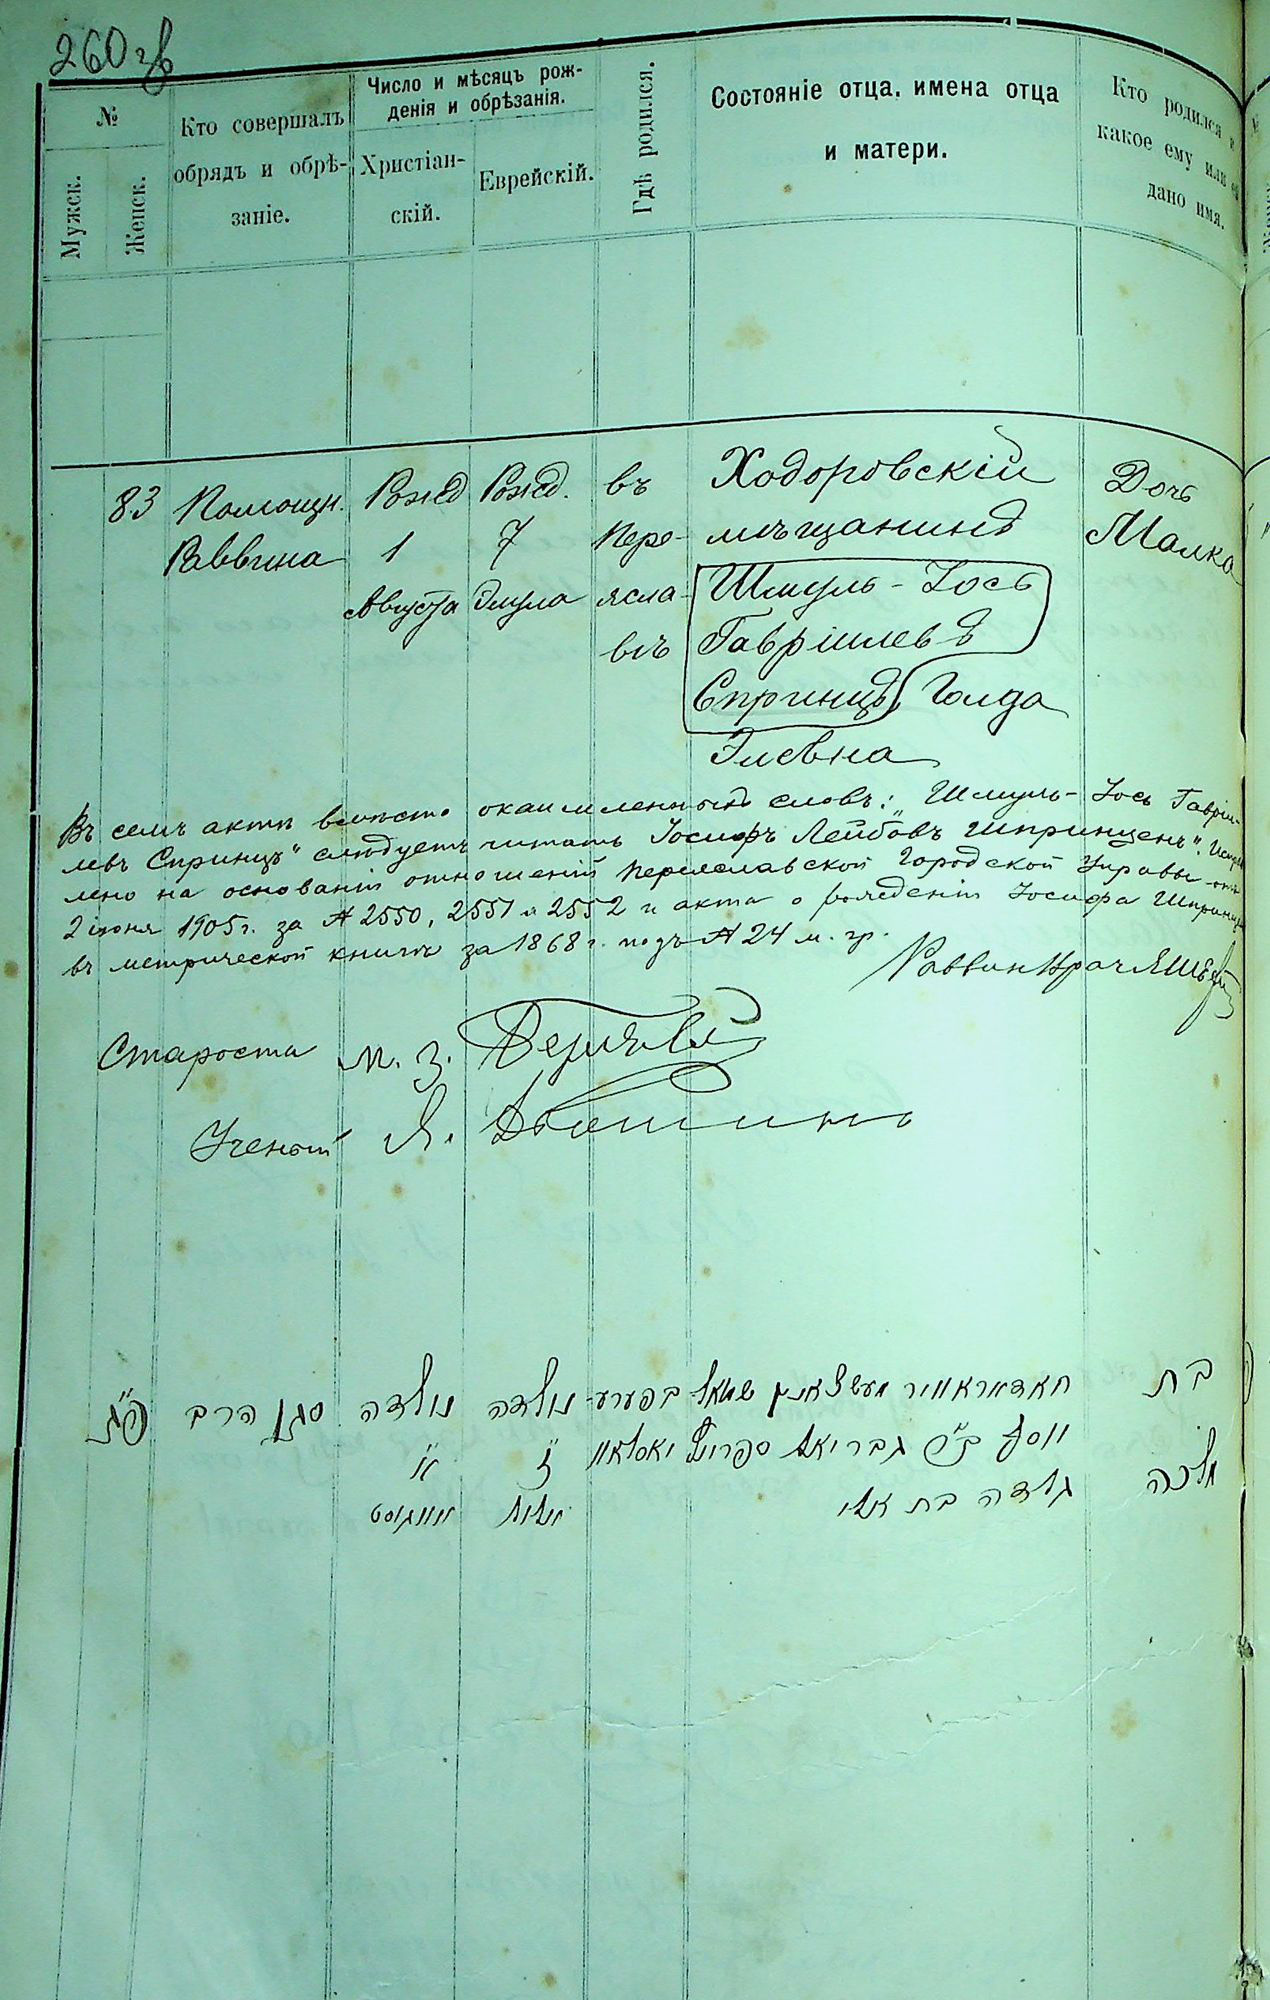 260 об
№
Мужск.
Женск.
Кто совершалъ
обрядъ и обрѣ-
заніе.
Число и мѣсяцъ рож-
денія и обрѣзанія.
Христіан-
скій.
Еврейскій.
Гдѣ родился.
Состояніе отца, имена отца
и матери.
Кто родился и
какое ему или ей
дано имя.
83 Помощн. Рожд Рожд. въ Ходоровскій Дочь
Раввина 1 7 Пере- мѣщанинъ Малка
Августа Элула ясла- Шмуль-Іось
влѣ Гавріилевъ
Спринцъ, Голда
Элевна
Въ семъ актѣ вмѣсто окаймленныхъ словъ: „Шмуль-Іось Гавріи-
левъ Спринцъ" слѣдуетъ читать Іосифъ Лейбовъ Шпринценъ".
лено на основаніи отношеній Переяславской Городской Управы отъ
2 іюня 1905 г. за № 2550, 2551 и 2552 и акта о рожденіи Іосифа
въ метрической книгѣ за 1868 г. подъ № 24 м. гр.
Раввинъ Врачъ
Староста М. З.
Ученый Я.
בת חאדאראוויר שמואל בפערע- נולדה נולדה סגן הרב פ״ג
מלכה יוסף ב״ר גבריאל ספרינץ יאסלאוו ז׳ א׳
גולדה בת אלי אלול אווגוסט